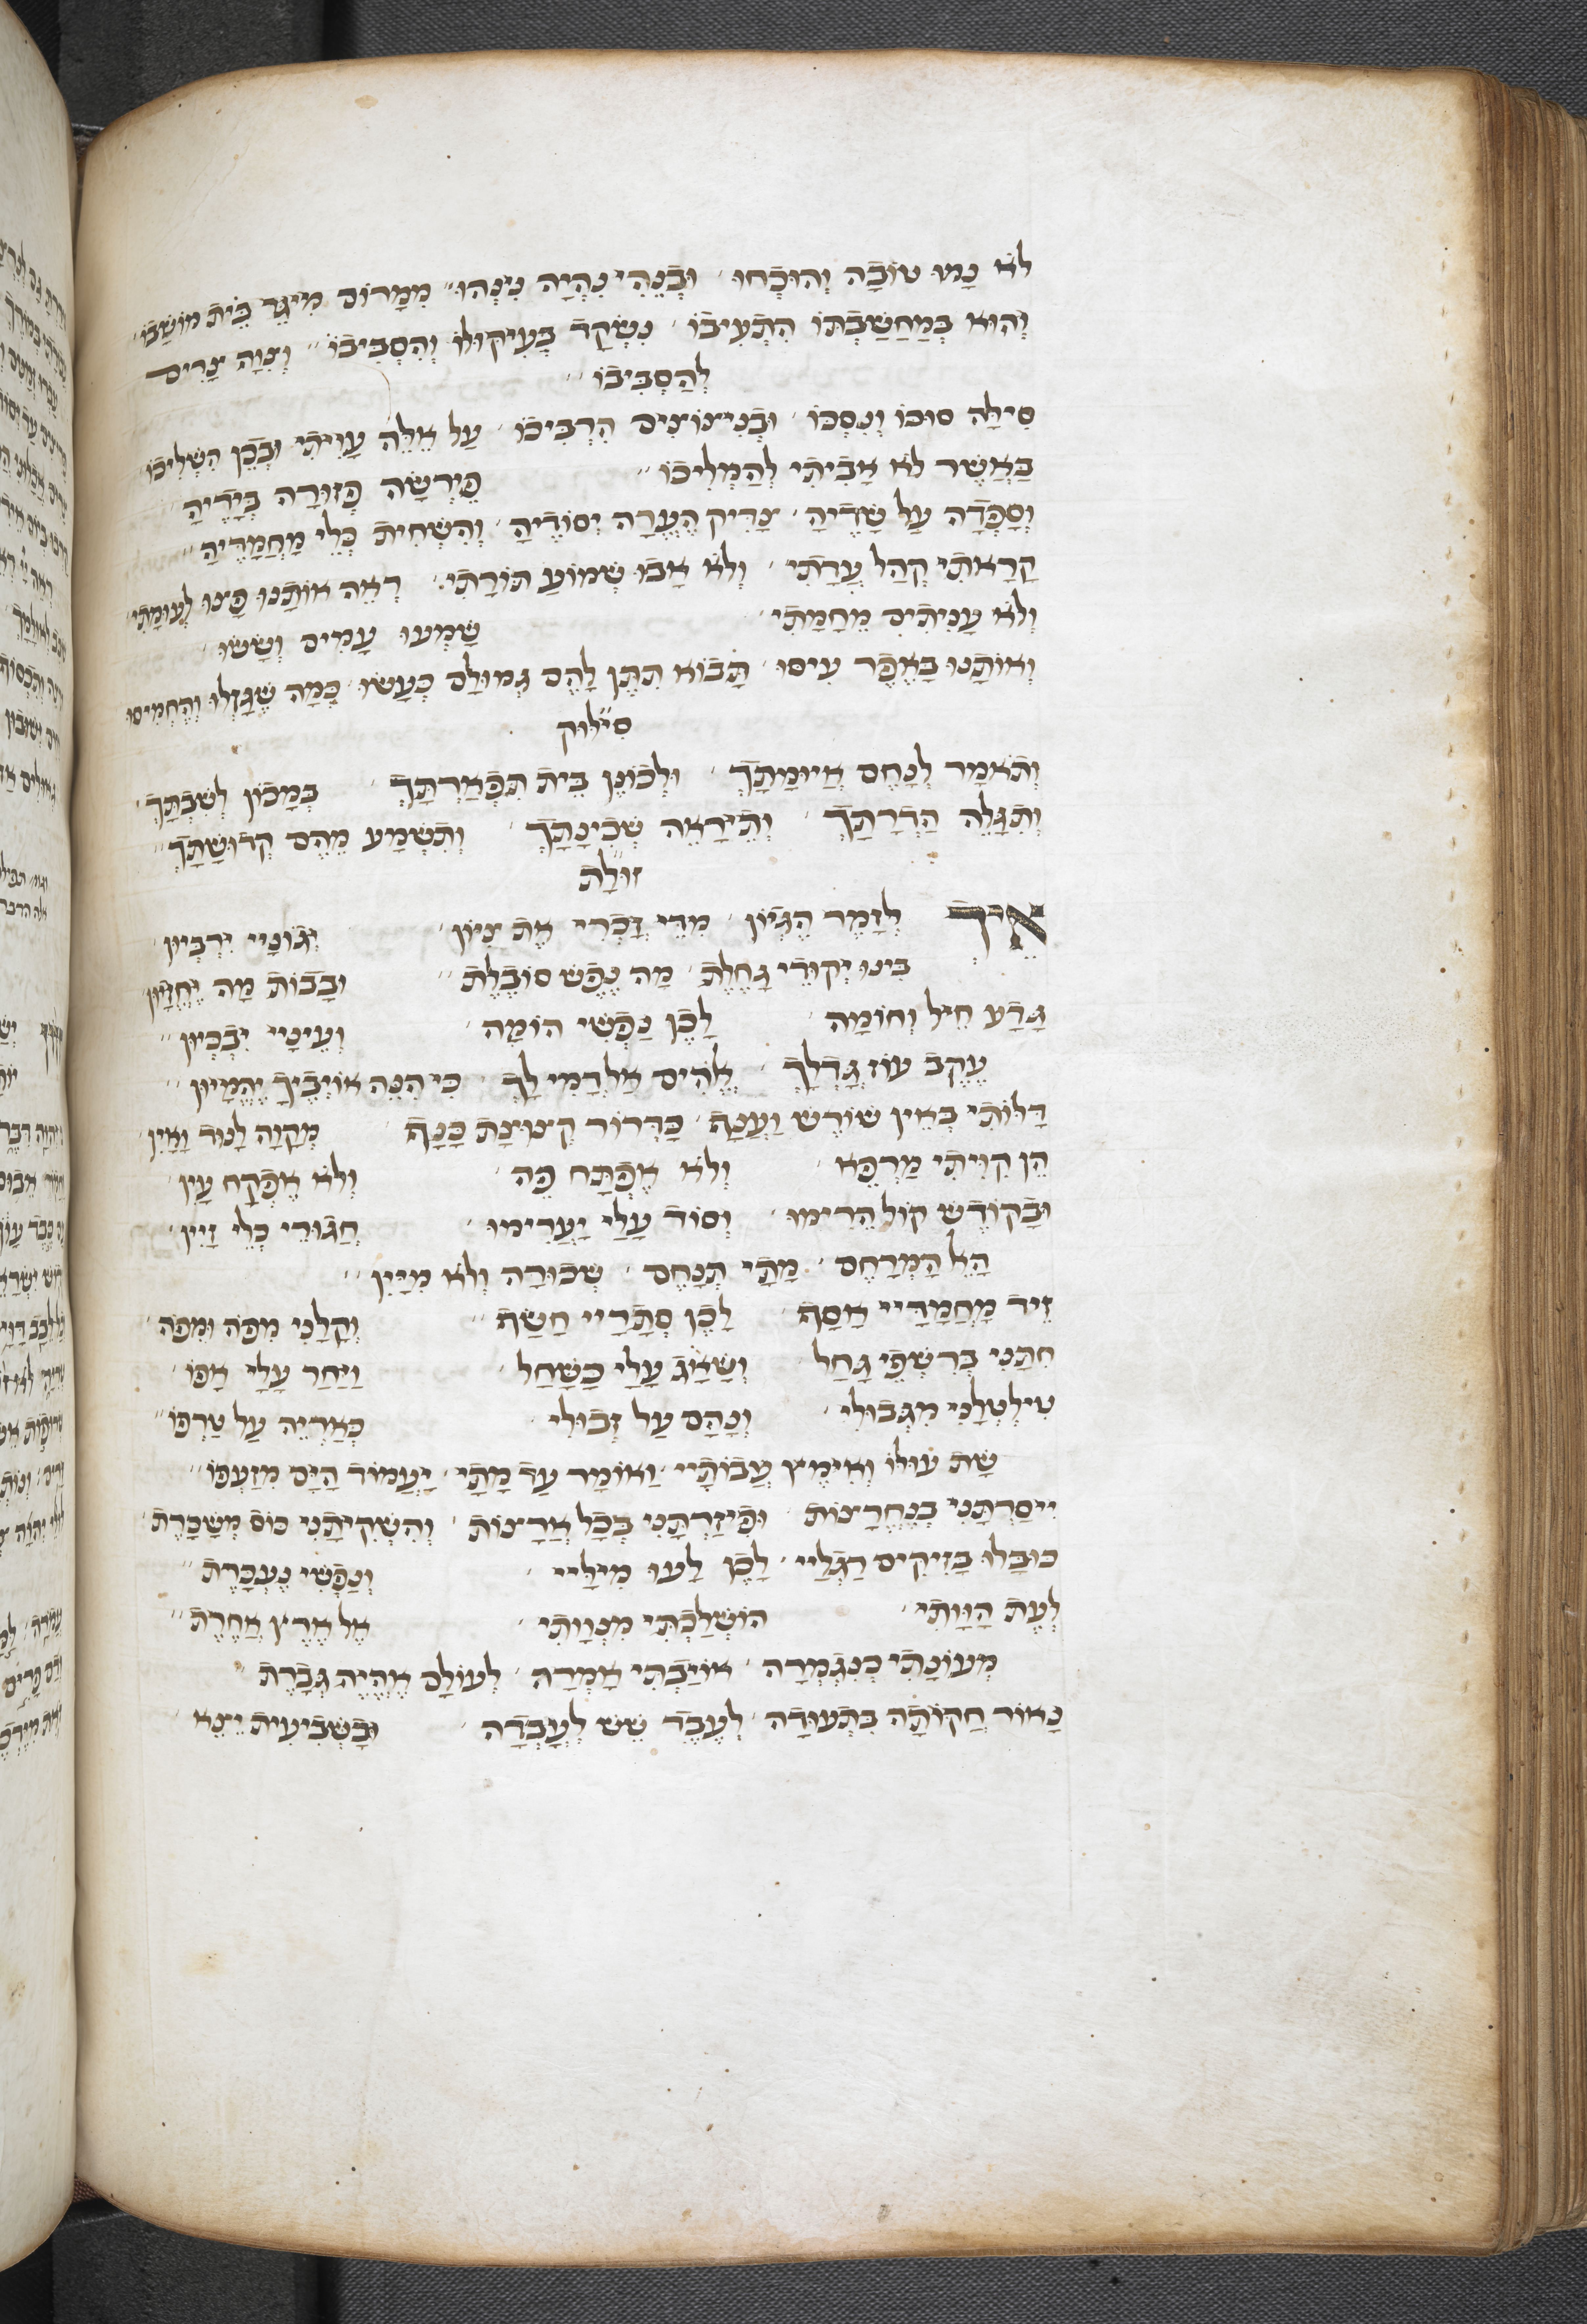 לֹא נָמוּ טוֹבָה וְהוּכְּחוּ וּבְנֶהִי נִהְיָה נִינְהוּ מִמָּרוֹם מִיגֵּר בֵּית מוֹשָׁבוֹ
וְהוּא בְּמַחֲשַׁבְתּוֹ הִתְעִיבוֹ נִשְׂקַד בְּעִיקּוּלוֹ וְהִסְבִּיבוֹ וְצִוָּה צָרִים
לְהַסְבִּיבוֹ
סִילָּה סוּכּוֹ וְנִסְכּוֹ וּבְנִיצוֹצִים הִרְבִּיכוֹ עַל אֵלֶּה עָוִיתִי וּבְכֵן הִשְׁלִיכוֹ
בַּאֲשֶׁר לֹא אָבִיתִי לְהַמְלִיכוֹ פֵּירְשָׂה פְּזוּרָה בְּיָדֶיהָ
וְסָפְדָה עַל שָׁדֶיהָ צַדִּיק הֶעֱרָה יְסוֹדֶיהָ וְהִשְׁחִית כְּלֵי מַחֲמַדֶּיהָ
קָרָאתִי קְהַל עֲדָתִי וְלֹא אָבוּ שְׁמוֹעַ תּוֹרָתִי רְאֵה אוֹתָנוּ פָּצוּ לְעוּמָתִי
וְלֹא עָנִיתִים מֵחֲמָתִי שָׁמְעוּ עַמִּים וְשָׂשׂוּ
וְאוֹתָנוּ בָּאֵפֶר עִיסּוּ תָּבוֹא תִתֵּן לָהֶם גְּמוּלָם כְּעָשׂוּ כְּמָה שֶׁגָּזְלוּ וְהֶחְמִיסוּ
סִילּוּק
וְתֹאמַר לְנַחֵם אֲיוּמָתָךְ וּלְכוֹנֵן בֵּית תִּפְאַרְתָּךְ בְּמָכוֹן לְשִׁבְתָּךְ
וְתִגָּלֶה הַדְרָתָךְ וְתֵירָאֶה שְׁכִינָתָךְ וְתִשְׁמַע מֵהֶם קְדוּשָּׁתָךְ
זוּלָת
אֵיךְ לְזַמֵּר הֶגְיוֹן מִדֵּי דַּבְּרִי אֶת צִיּוֹן יְגוֹנָיי יִרְבְּיוּן
בִּינוּ יְקוּדֵי גַחֶלֶת מַה נֶפֶשׁ סוֹבֶלֶת וּבָבוֹת מַה יֶּחֱזָיוּן
גָּרַע חֵיל וְחוֹמָה לָכֵן נַפְשִׁי הוֹמָה וְעֵינָיי יִבְכְּיוּן
עֵקֶב עוֹז גָּדְלָךְ אֱלֹהִים אַל דֳּמִי לָךְ כִּי הִנֵּה אוֹיְבֶיךָ יֶהֱמָיוּן
דַּלּוֹתִי בְּאֵין שׁוֹרֶשׁ וַעֲנָף כִּדְרוֹר קְצוּצַת כָּנָף מְקַוָּה לָנוּד וָאָיִן
הֵן קִוִּיתִי מַרְפֵּא וְלֹא אֶפְתַּח פֶּה וְלֹא אֶפְקַח עָיִן
וּבַקּוֹדֶשׁ קוֹל הֵרִימוּ וְסוֹד עָלַי יַעֲרִימוּ חֲגוּרֵי כְּלֵי זַיִין
הָאֵל הַמְרַחֵם מָתַי תְּנַחֵם שְׁכוּרָה וְלֹא מִיָּיִן
זֵיד מַחֲמַדָּיי אָסַף לָכֵן סְתָרָיי חָשַׂף וְקִלַּנִי מִפֹּה וּמִפֹּה
חִתַּנִי בְּרִשְׁפֵּי גַחַל וְשָׁאַג עָלַי כַּשַּׁחַל וַיִּחַר עָלַי אַפּוֹ
טִילְטְלַנִי מִגְּבוּלִי וְנָהַם עַל זְבוּלִי כְּאַרְיֵה עַל טַרְפּוֹ
שָׁת עוּלּוֹ וְאִימֵּץ עֲבוֹתָיי וְאוֹמַר עַד מָתַי יַעֲמוֹד הַיָּם מִזַּעְפּוֹ
יִיסַּרְתַּנִי בְּנֶחֱרָצוֹת וּפִיזַּרְתַּנִי בְּכָל אֲרָצוֹת וְהִשְׁקִיתַנִי כּוֹס מְשַׁכֶּרֶת
כּוּבְּלוּ בַזִּיקִים רַגְלָיי לָכֵן לָעוּ מִילָּיי וְנַפְשִׁי נֶעְכָּרֶת
לְעֵת הַוָּותִי הוּשְׁלַכְתִּי מִנְּוָותִי אֶל אֶרֶץ אַחֶרֶת
מְעוֹנָתִי כְּנִגְמְרָה אוֹיַבְתִּי אָמְרָה לְעוֹלָם אֶהְיֶה גְבָרֶת
נָאוֹר חֲקוֹתָהּ בִּתְעוּדָה לְעֶבֶד שֵׁשׁ לְעָבְדָה וּבַשְּׁבִיעִית יֵצֵא